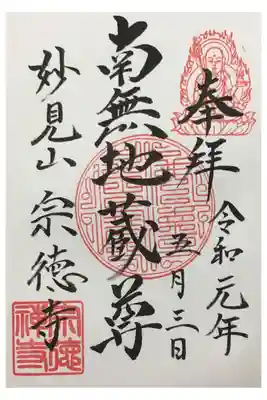 奉拝
令和元年
五月三日
南無地蔵尊
妙見山 宗徳寺